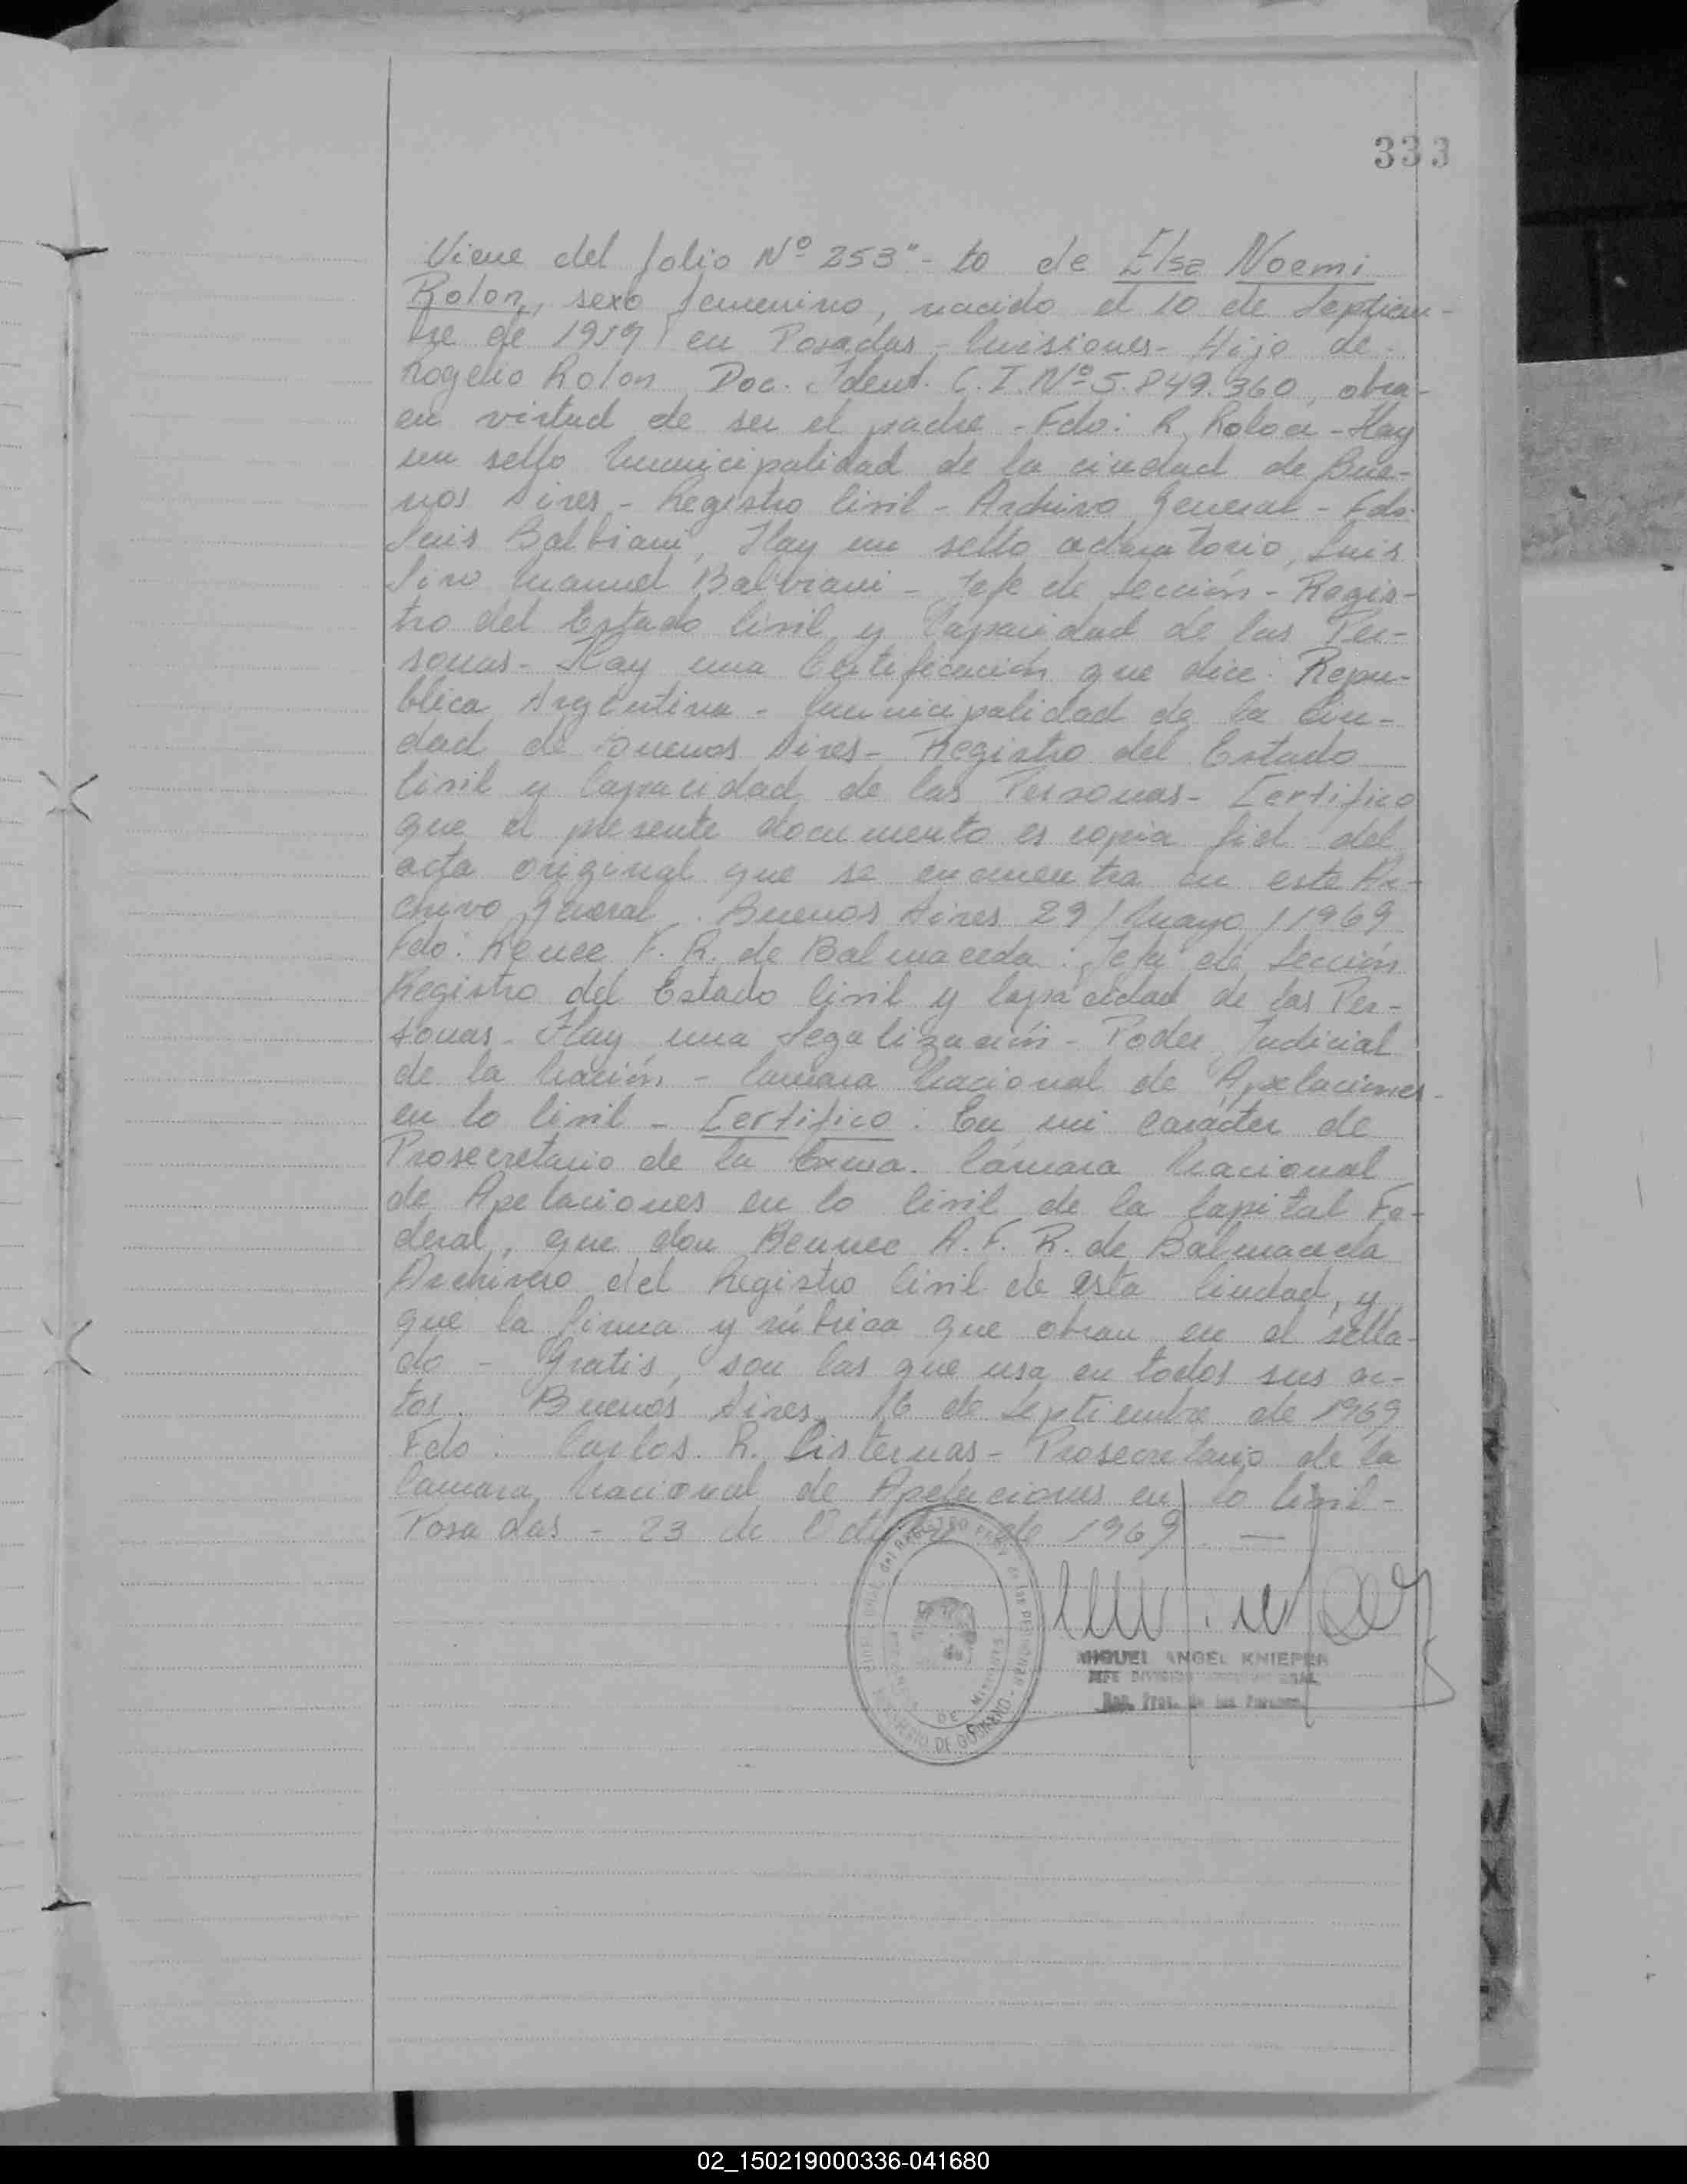 333
Viene del folio Nº 253"- to de Elsa Noemi
Rolon, sexo femenino, nacido el 10 de Septiem-
bre de 1919 en Posadas - Misiones - Hijo de -
Rogelio Rolon Doc. Ident. C.I. Nº 5.849.360, obra-
en virtud de ser el padre - Fdo: R. Rolon - Hay
un sello Municipalidad de la ciudad de Bue-
nos Aires - Registro Civil - Archivo General - Fdo:
Luis Balbiani, Hay un sello aclaratorio, Luis
Siro Manuel Balbiani - Jefe de Sección - Regis-
tro del Estado Civil y Capacidad de las Per-
sonas - Hay una Certificación que dice: Repu-
blica Argentina - Municipalidad de la Ciu-
dad de Buenos Aires - Registro del Estado
Civil y Capacidad de las Personas - Certifico
que el presente documento es copia fiel del
acta original que se encuentra en este Ar-
chivo General. Buenos Aires 29/Mayo/1969
Fdo: Renee F. R. de Balmaceda: Jefe de Sección
Registro del Estado Civil y Capacidad de las Per-
sonas - Hay una Legalización - Poder Judicial
de la Nación - Camara Nacional de Apelaciones
en lo Civil - Certifico: En mi carácter de
Prosecretario de la Exma. Cámara Nacional
de Apelaciones en lo Civil de la Capital Fe-
deral, que don Rennee A. F. R. de Balmaceda
Archivero del Registro Civil de esta Ciudad, y
que la firma y rúbrica que obran en el sella-
do - Gratis, son las que usa en todos sus ac-
tos. Buenos Aires, 16 de Septiembre de 1969
Fdo: Carlos. R. Cisternas - Prosecretario de la
Camara Nacional de Apelaciones en lo Civil -
Posadas - 23 de Octubre de 1969. —
MIGUEL ANGEL KNIEPER
JEFE DIVISION GRAL.
Reg. Prov. de las Personas
MINISTERIO DE GOBIERNO
PROVINCIA DE MISIONES
02_150219000336-041680